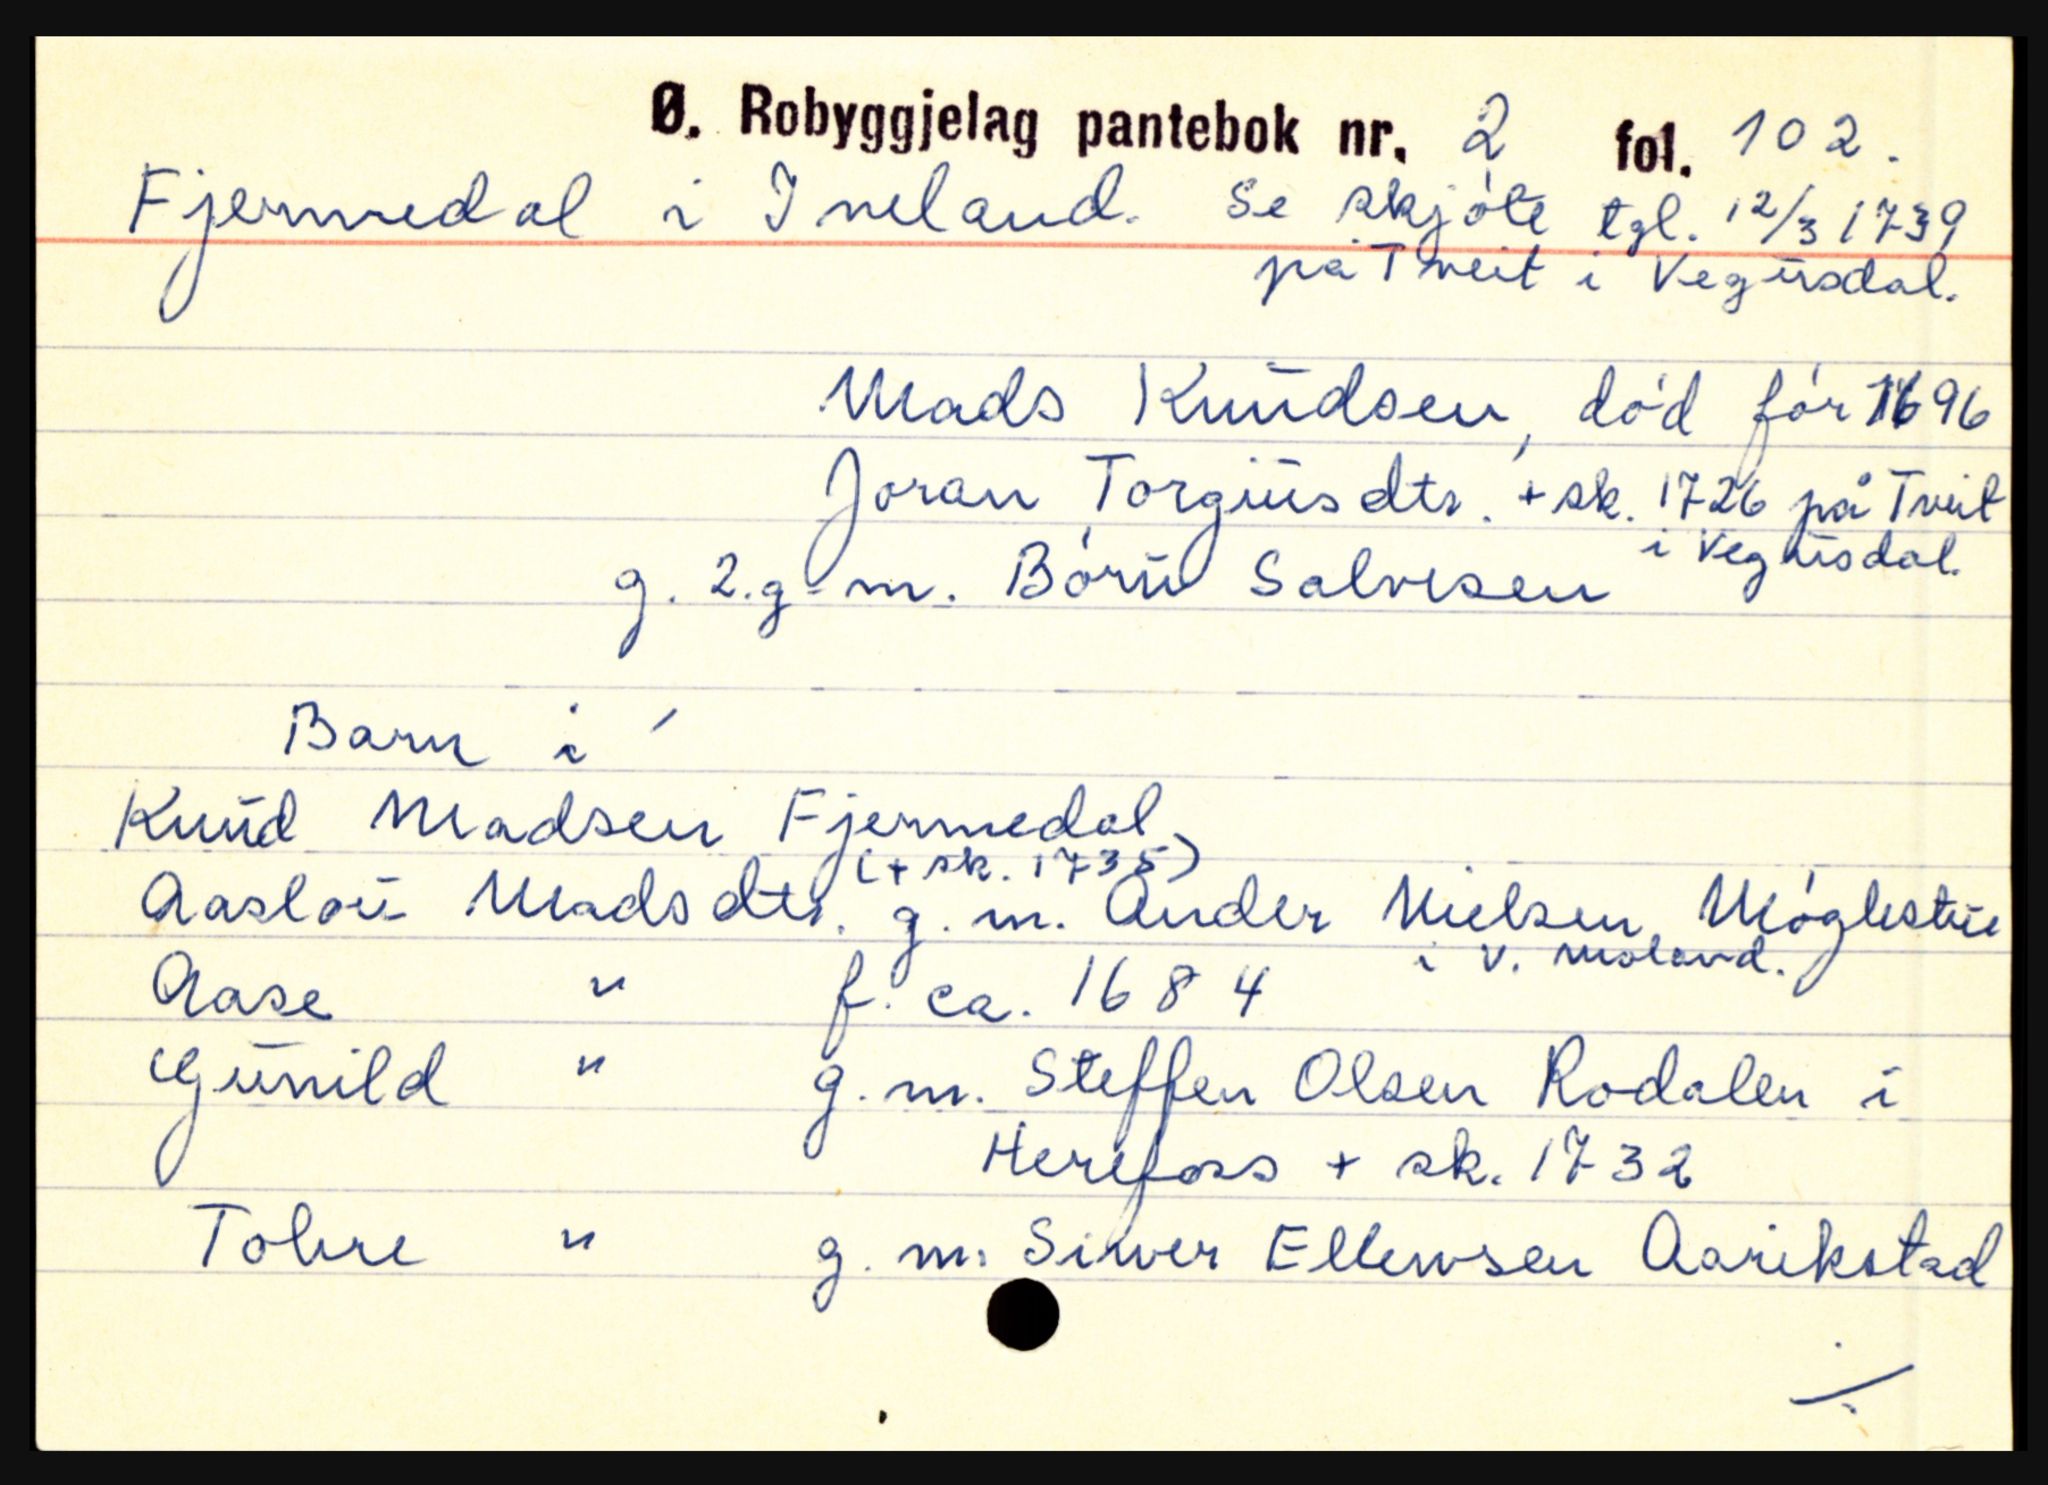 Ø. Robyggjelag pantebok nr. 2 fol. 102.
Fjermedal i Iveland. Se skjøte tgl. 12/3 1739
på Tveit i Vegusdal.
Mads Knudsen, død før 1696
Joran Torgiusdtr. + sk. 1726 på Tveit
i Vegusdal.
g. 2.g m. Børu Salvesen
Barn i
Knud Madsen Fjermedal
(+ sk. 1735)
Aaslou Madsdtr. g. m. Ander Nielsen Møglestue
i V. Moland.
Aase " f. ca. 1684
Gunild " g. m. Steffen Olsen Rodalen i
Herefoss + sk. 1732
Tolve " g. m. Siwer Ellewsen Aarikstad